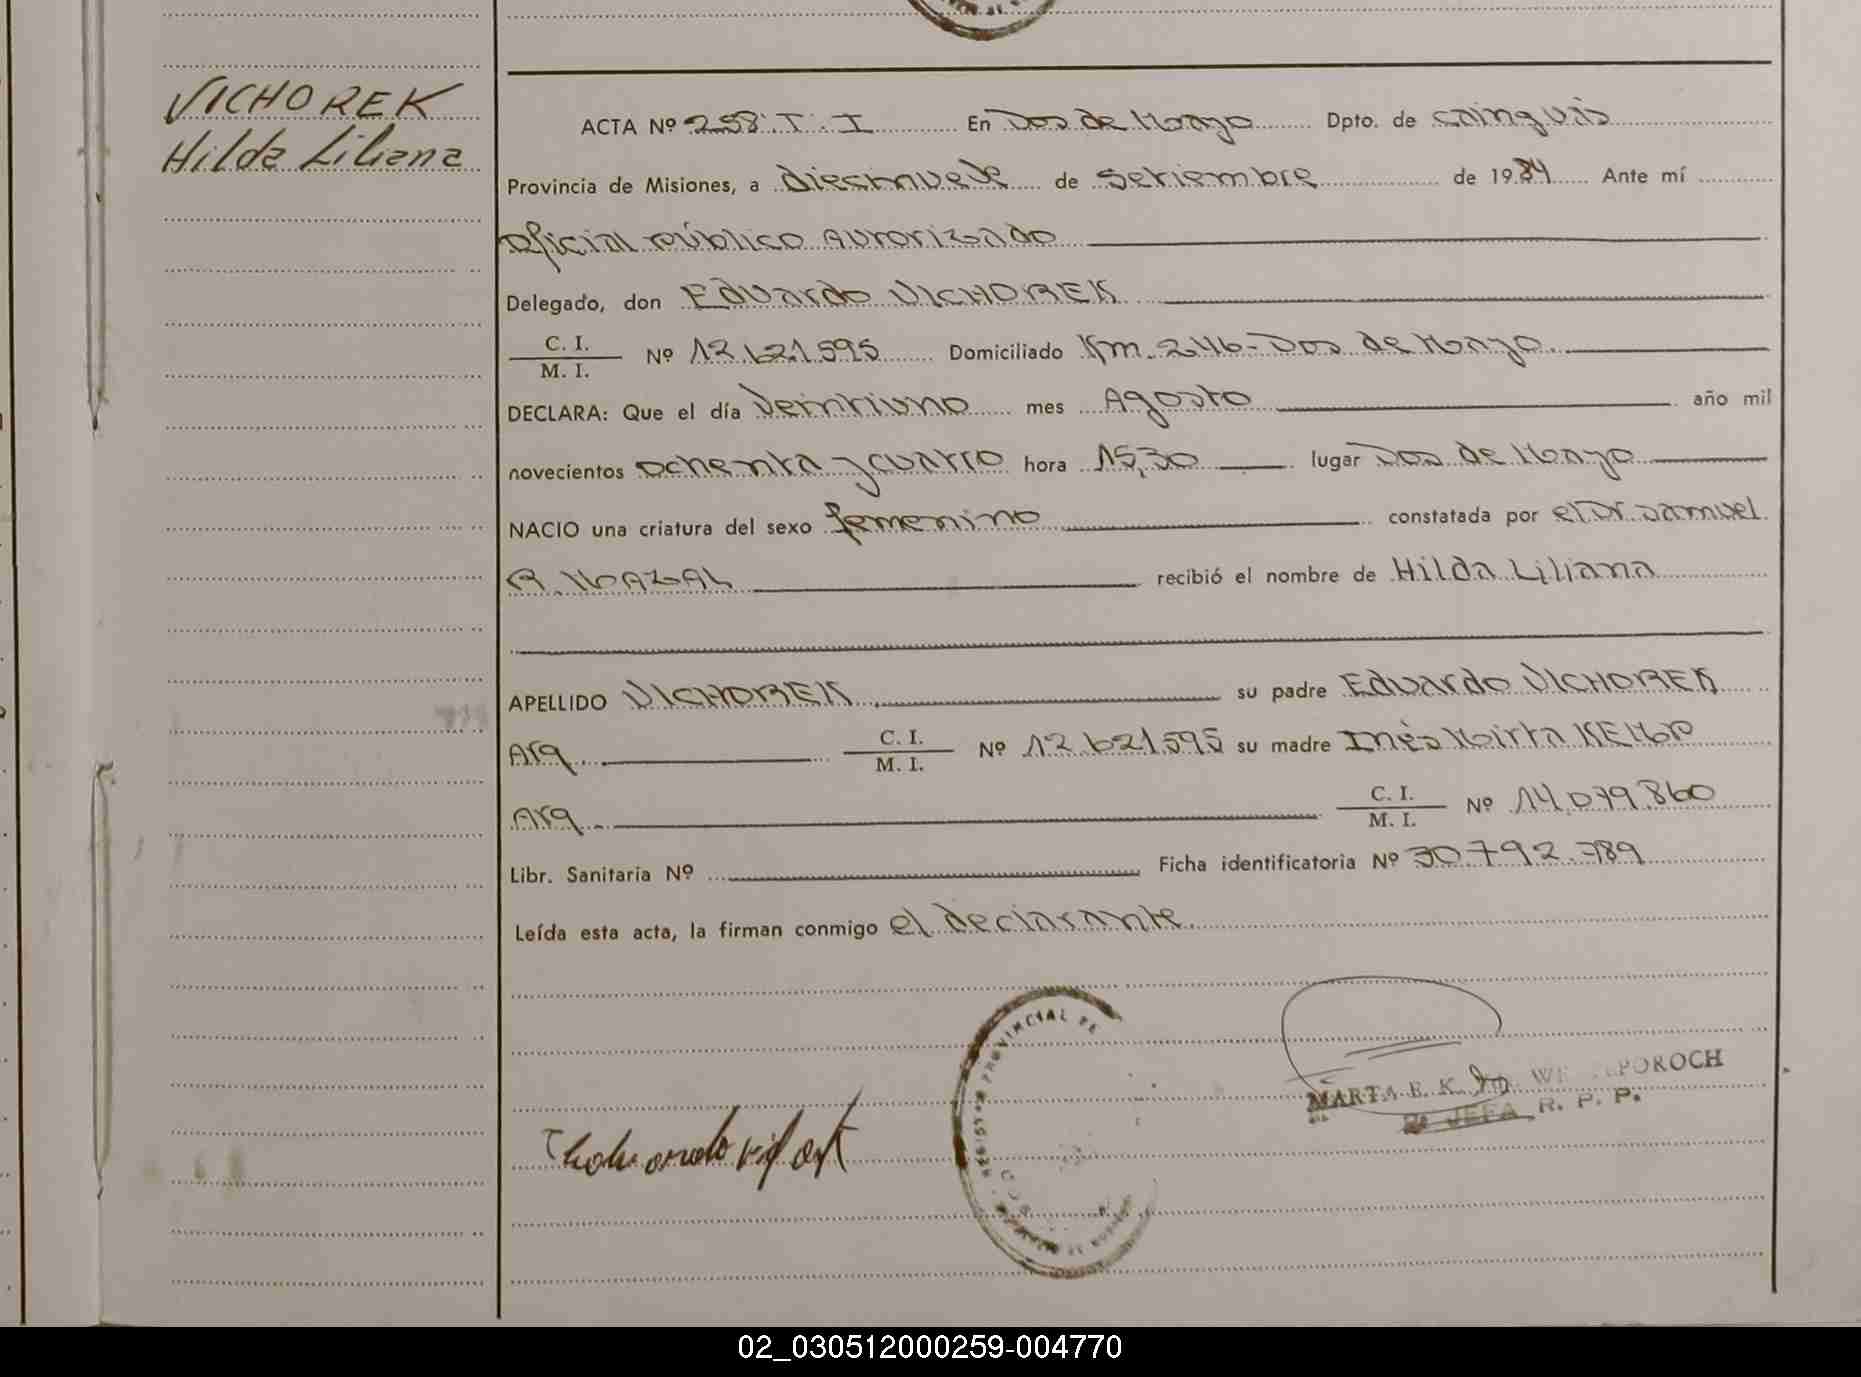 VICHOREK
Hilda Liliana
ACTA Nº 258. T. I En Dos de Mayo Dpto. de Cainguás
Provincia de Misiones, a diecinueve de Setiembre de 1984 Ante mí
Oficial público Autorizado
Delegado, don Eduardo VICHOREK
C. I.
M. I. Nº 12.621.595 Domiciliado Km. 246-Dos de Mayo.
DECLARA: Que el día Veintiuno mes Agosto año mil
novecientos ochenta y cuatro hora 15,30 lugar Dos de Mayo
NACIO una criatura del sexo femenino constatada por el Dr. Samuel
R. MAZAL recibió el nombre de Hilda Liliana
APELLIDO VICHOREK su padre Eduardo VICHOREK
Arg. C. I.
M. I. Nº 12.621.595 su madre Inés Mirta KEMP
Arg. C. I.
M. I. Nº 14.079.860
Libr. Sanitaria Nº Ficha identificatoria Nº 30.792.789
Leída esta acta, la firman conmigo el declarante.
PROVINCIAL DE
MARTA E. K. POROCH
JEFA R. P. P.
02_030512000259-004770